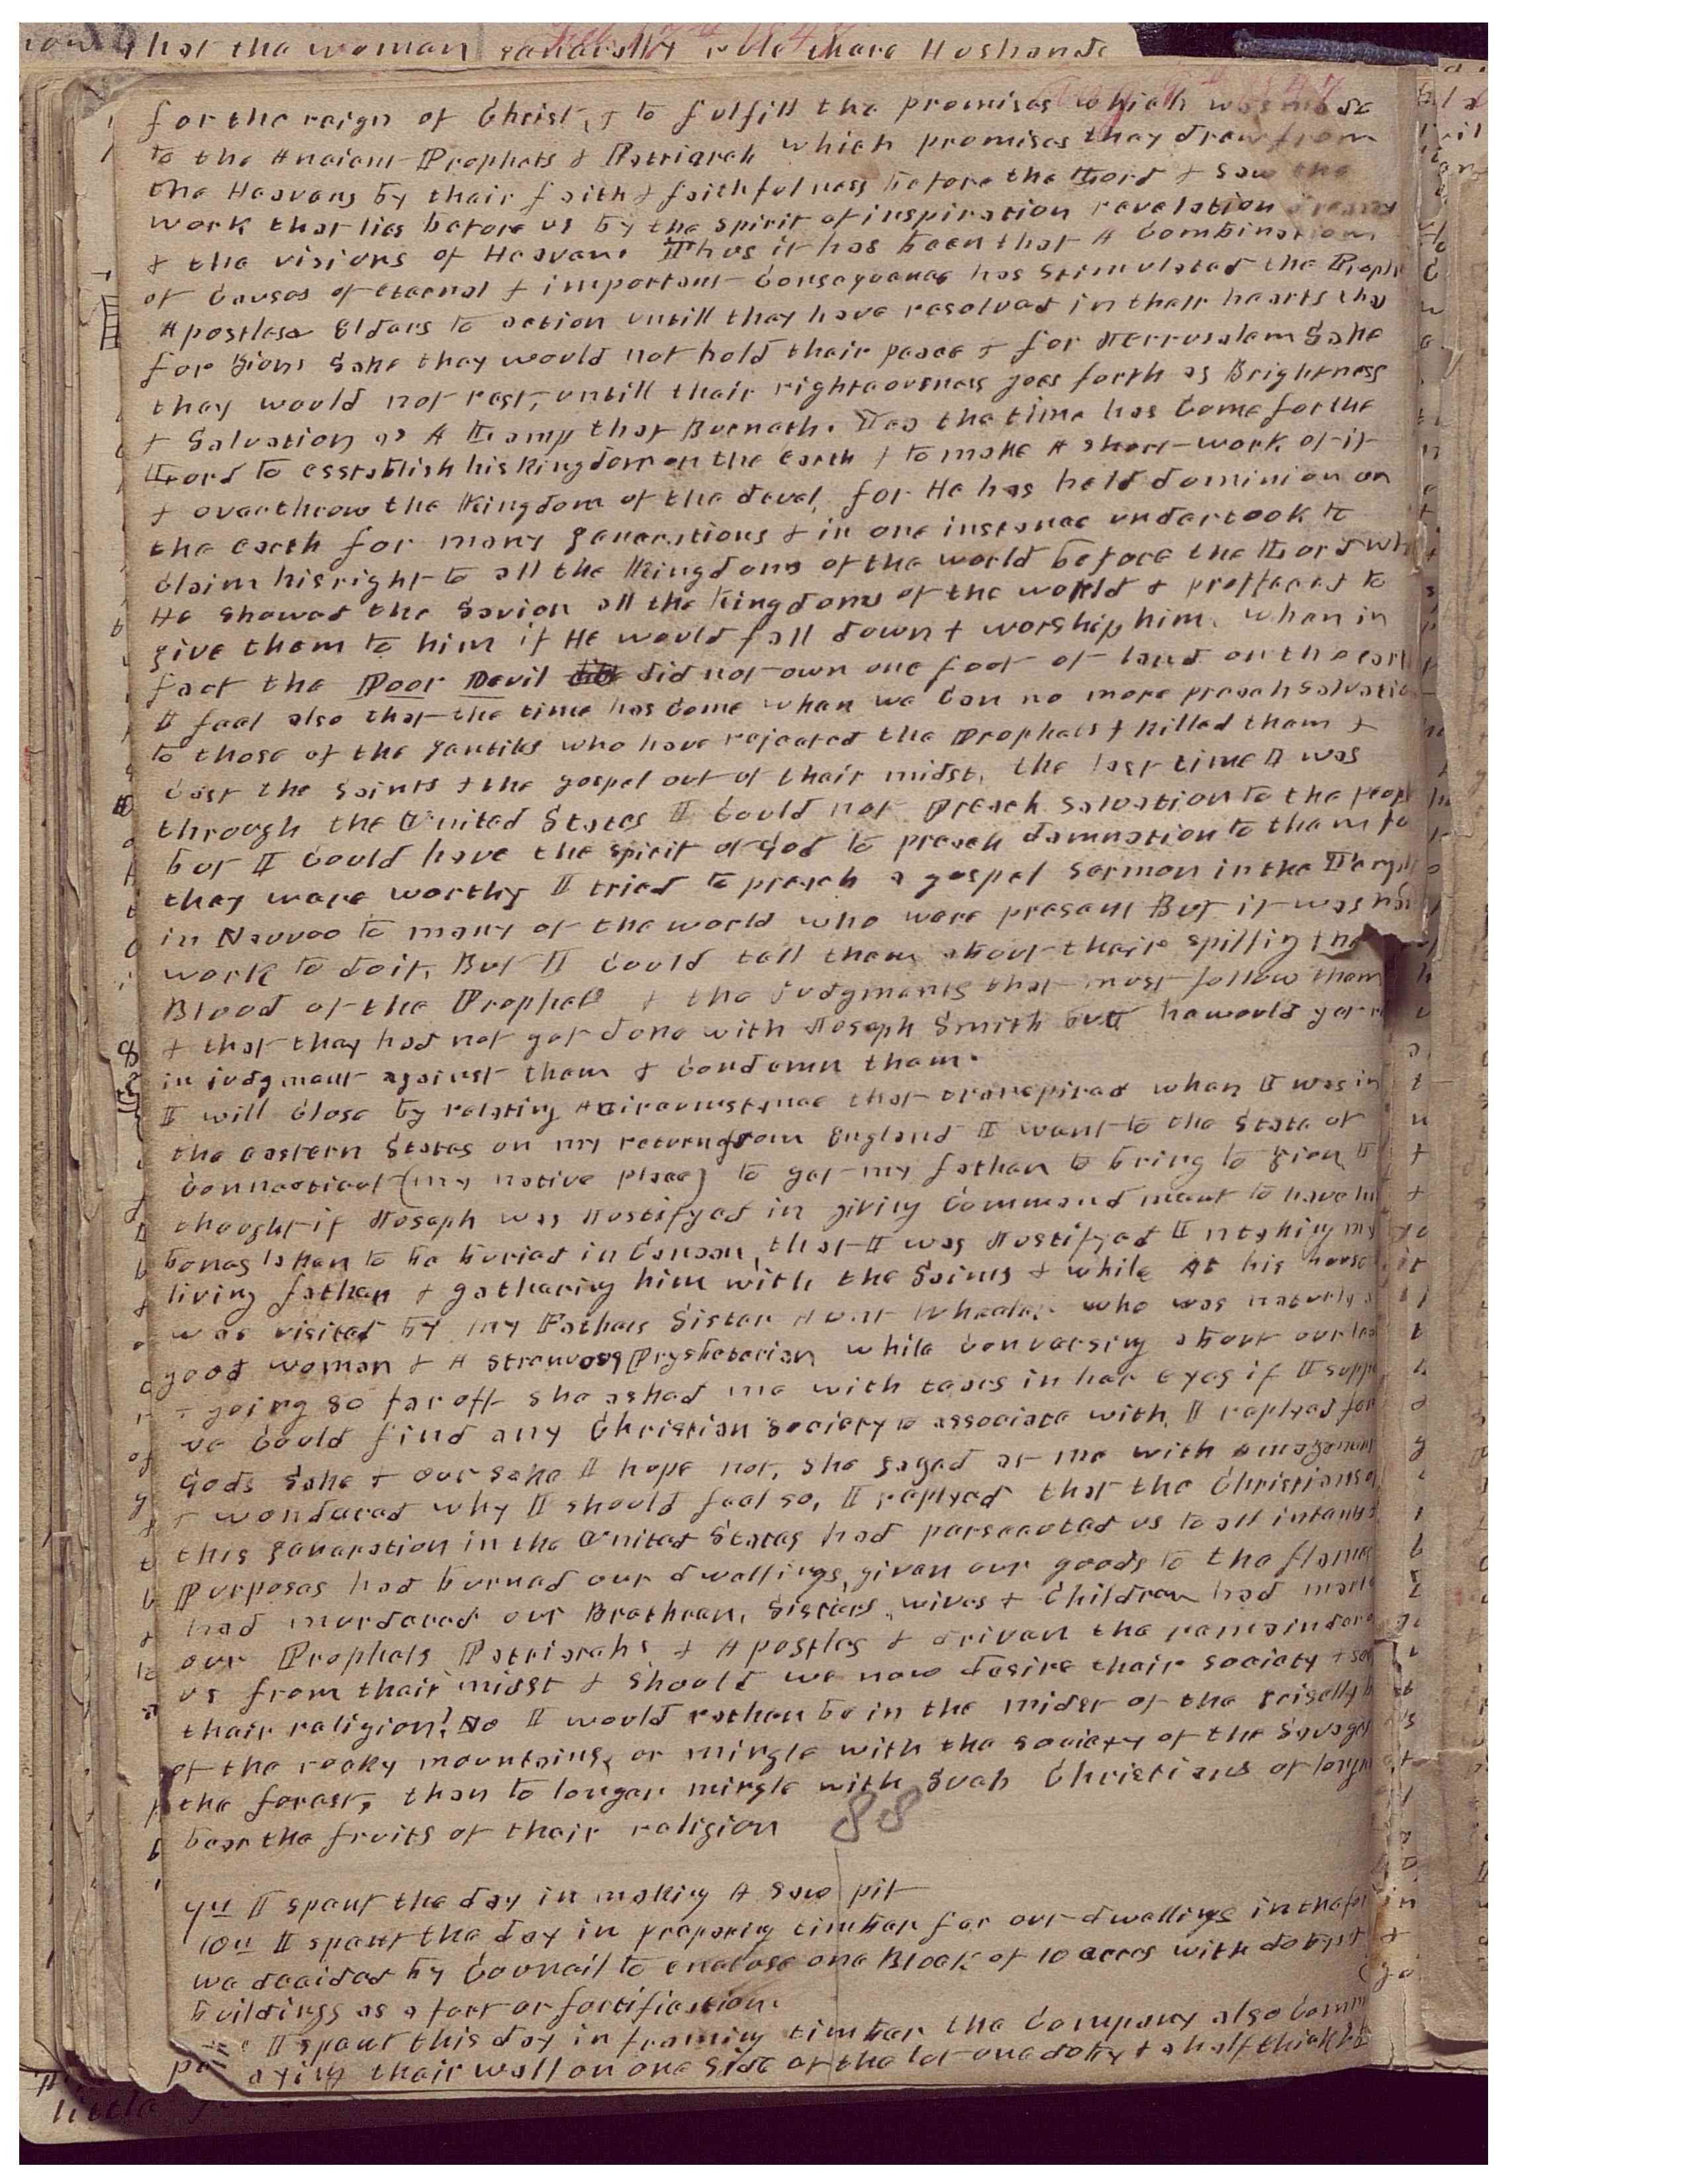 that the woman generally rule thare Husbands
for the reign of Christ, & to fulfill the promises which was made
to the Ancient Prophets & Patriarch which promises they drew from
the Heavens by their faith & faithfulness before the Lord & saw the
work that lies before us by the spirit of inspiration revelation
& the visions of Heaven. Thus it has been that A Combination
of Causes of eternal & important Consequence has Stimulated the Proph
Apostles & Elders to action untill they have resolved in their hearts tha
for Zions Sake they would not hold their peace & for Jerrusalem Sake
they would not rest, untill their righteousness goes forth as Brightness
& Salvation as A Lamp that Burneth. Yes the time has Come for the
Lord to esstablish his kingdom on the earth & to make A short work of it
& overthrow the Kingdom of the devel, for He has held dominion on
the earth for many generations & in one instance undertook to
claim his right to all the Kingdoms of the world before the Lord wh
He showed the Savior all the kingdoms of the world & proffered to
give them to him if He would fall down & worship him. when in
fact the Poor Devil did not own one foot of land on the earth
I feel also that the time has Come when we Can no more preach salvatio
to those of the gentiles who have rejected the Prophets & killed them &
Cast the Saints & the gospel out of their midst. the last time I was
through the United States I Could not Preach Salvation to the peopl
but I Could have the spirit of God to preach damnation to them fo
they were worthy I tried to preach a gospel Sermon in the Templ
in Nauvoo to many of the world who were present But it was ha
work to do it, But I Could tell them about their spilling the
Blood of the Prophets & the judgments that must follow them
& that they had not got done with Joseph Smith but he would yet
in judgment against them & Condemn them.
I will Close by relating A circumstance that transpired when I was in
the eastern States on my return from England I went to the State of
Connecticut (my native place) to get my father to bring to Zion I
thought if Joseph was Justifyed in giving Commandment to have hi
bones taken to be buried in Canaan, that I was Justifyed In taking my
living father & gathering him with the Saints & while At his house
was visited by my Fathers Sister Aunt Wheeler who was naturly a
good woman & A strenuous Prysbeterian while Conversing about our
going so far off she asked me with tears in her eyes if I supp
we Could find any Christian Society to associate with, I replyed for
Gods Sake & our sake I hope not, she gazed at me with amazement
& wondered why I should feel so, I replyed that the Christians o
this generation in the United States had persecuted us to all intents
Purposes had burned our dwellings, given our goods to the flames
had murdered our Brethren, Sisters, wives & Children had
our Prophets Patriarchs & Apostles & driven the remainder
us from their midst & should we now desire their society &
their religion? No I would rather be in the midst of the Griselly b
of the rocky mountains, or mingle with the society of the Savages
the forest, than to longer mingle with such Christians or longer
bear the fruits of their religion 88
9th I spent the day in making A saw pit
10th I spent the day in preparing timber for our dwellings in the for
we decided by Council to enclose one Block of 10 acres with dobyes &
buildings as a fort or fortification.
I spent this day in framing timber the Company also Comm
aying their wall on one side of the lot one doby & a half thick
little